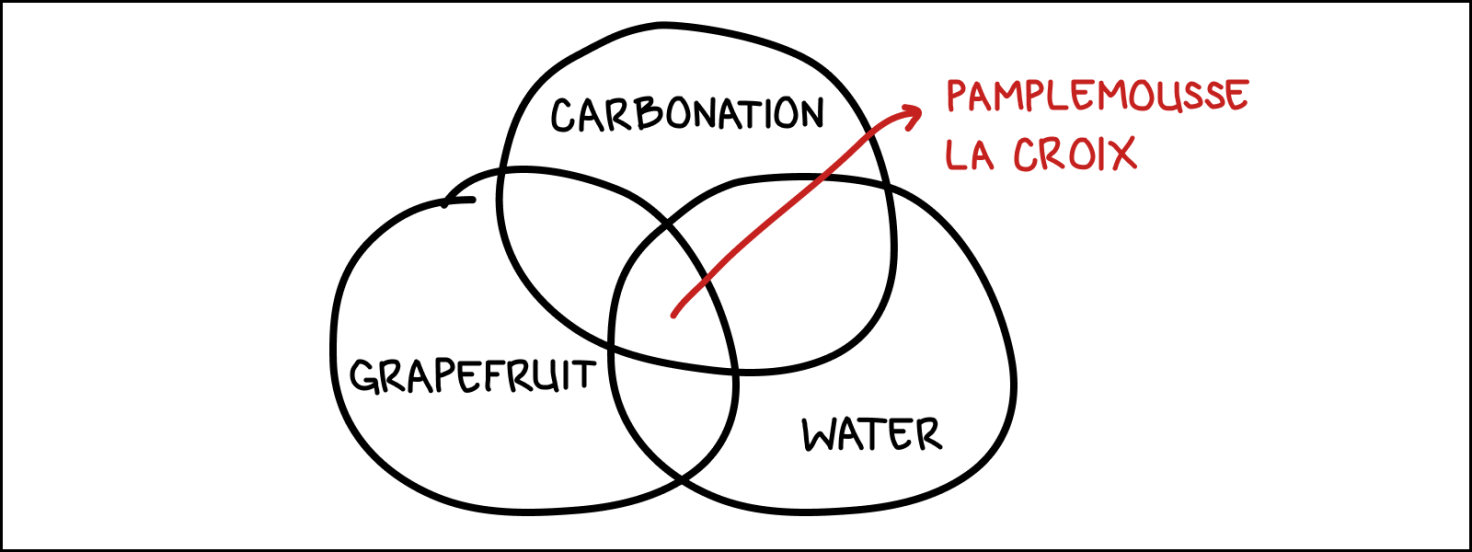 CARBONATION
PAMPLEMOUSSE
LA CROIX
GRAPEFRUIT
WATER